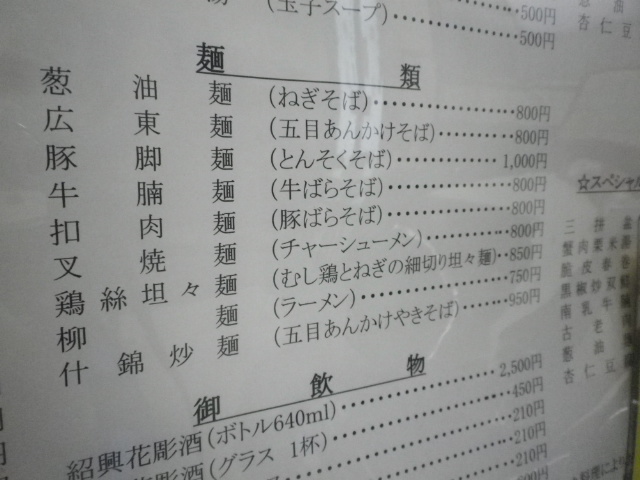 (玉子スープ) 500円
500円
麺類
葱油麺 (ねぎそば) 800円
広東麺 (五目あんかけそば) 800円
豚脚麺 (とんそくそば) 1,000円
牛腩麺 (牛ばらそば) 800円
扣肉麺 (豚ばらそば) 800円
叉焼麺 (チャーシューメン) 800円
鶏絲坦々麺 (むし鶏とねぎの細切り坦々麺) 850円
柳麺 (ラーメン) 750円
什錦炒麺 (五目あんかけやきそば) 950円
御飲物
紹興花彫酒 (ボトル640ml) 2,500円
花彫酒 (グラス 1杯) 450円
210円
210円
210円
杏仁豆
☆スペシャル
三拼
蟹肉粟米
脆皮春巻
黒椒炒双
南乳牛
古老肉
葱油
杏仁豆